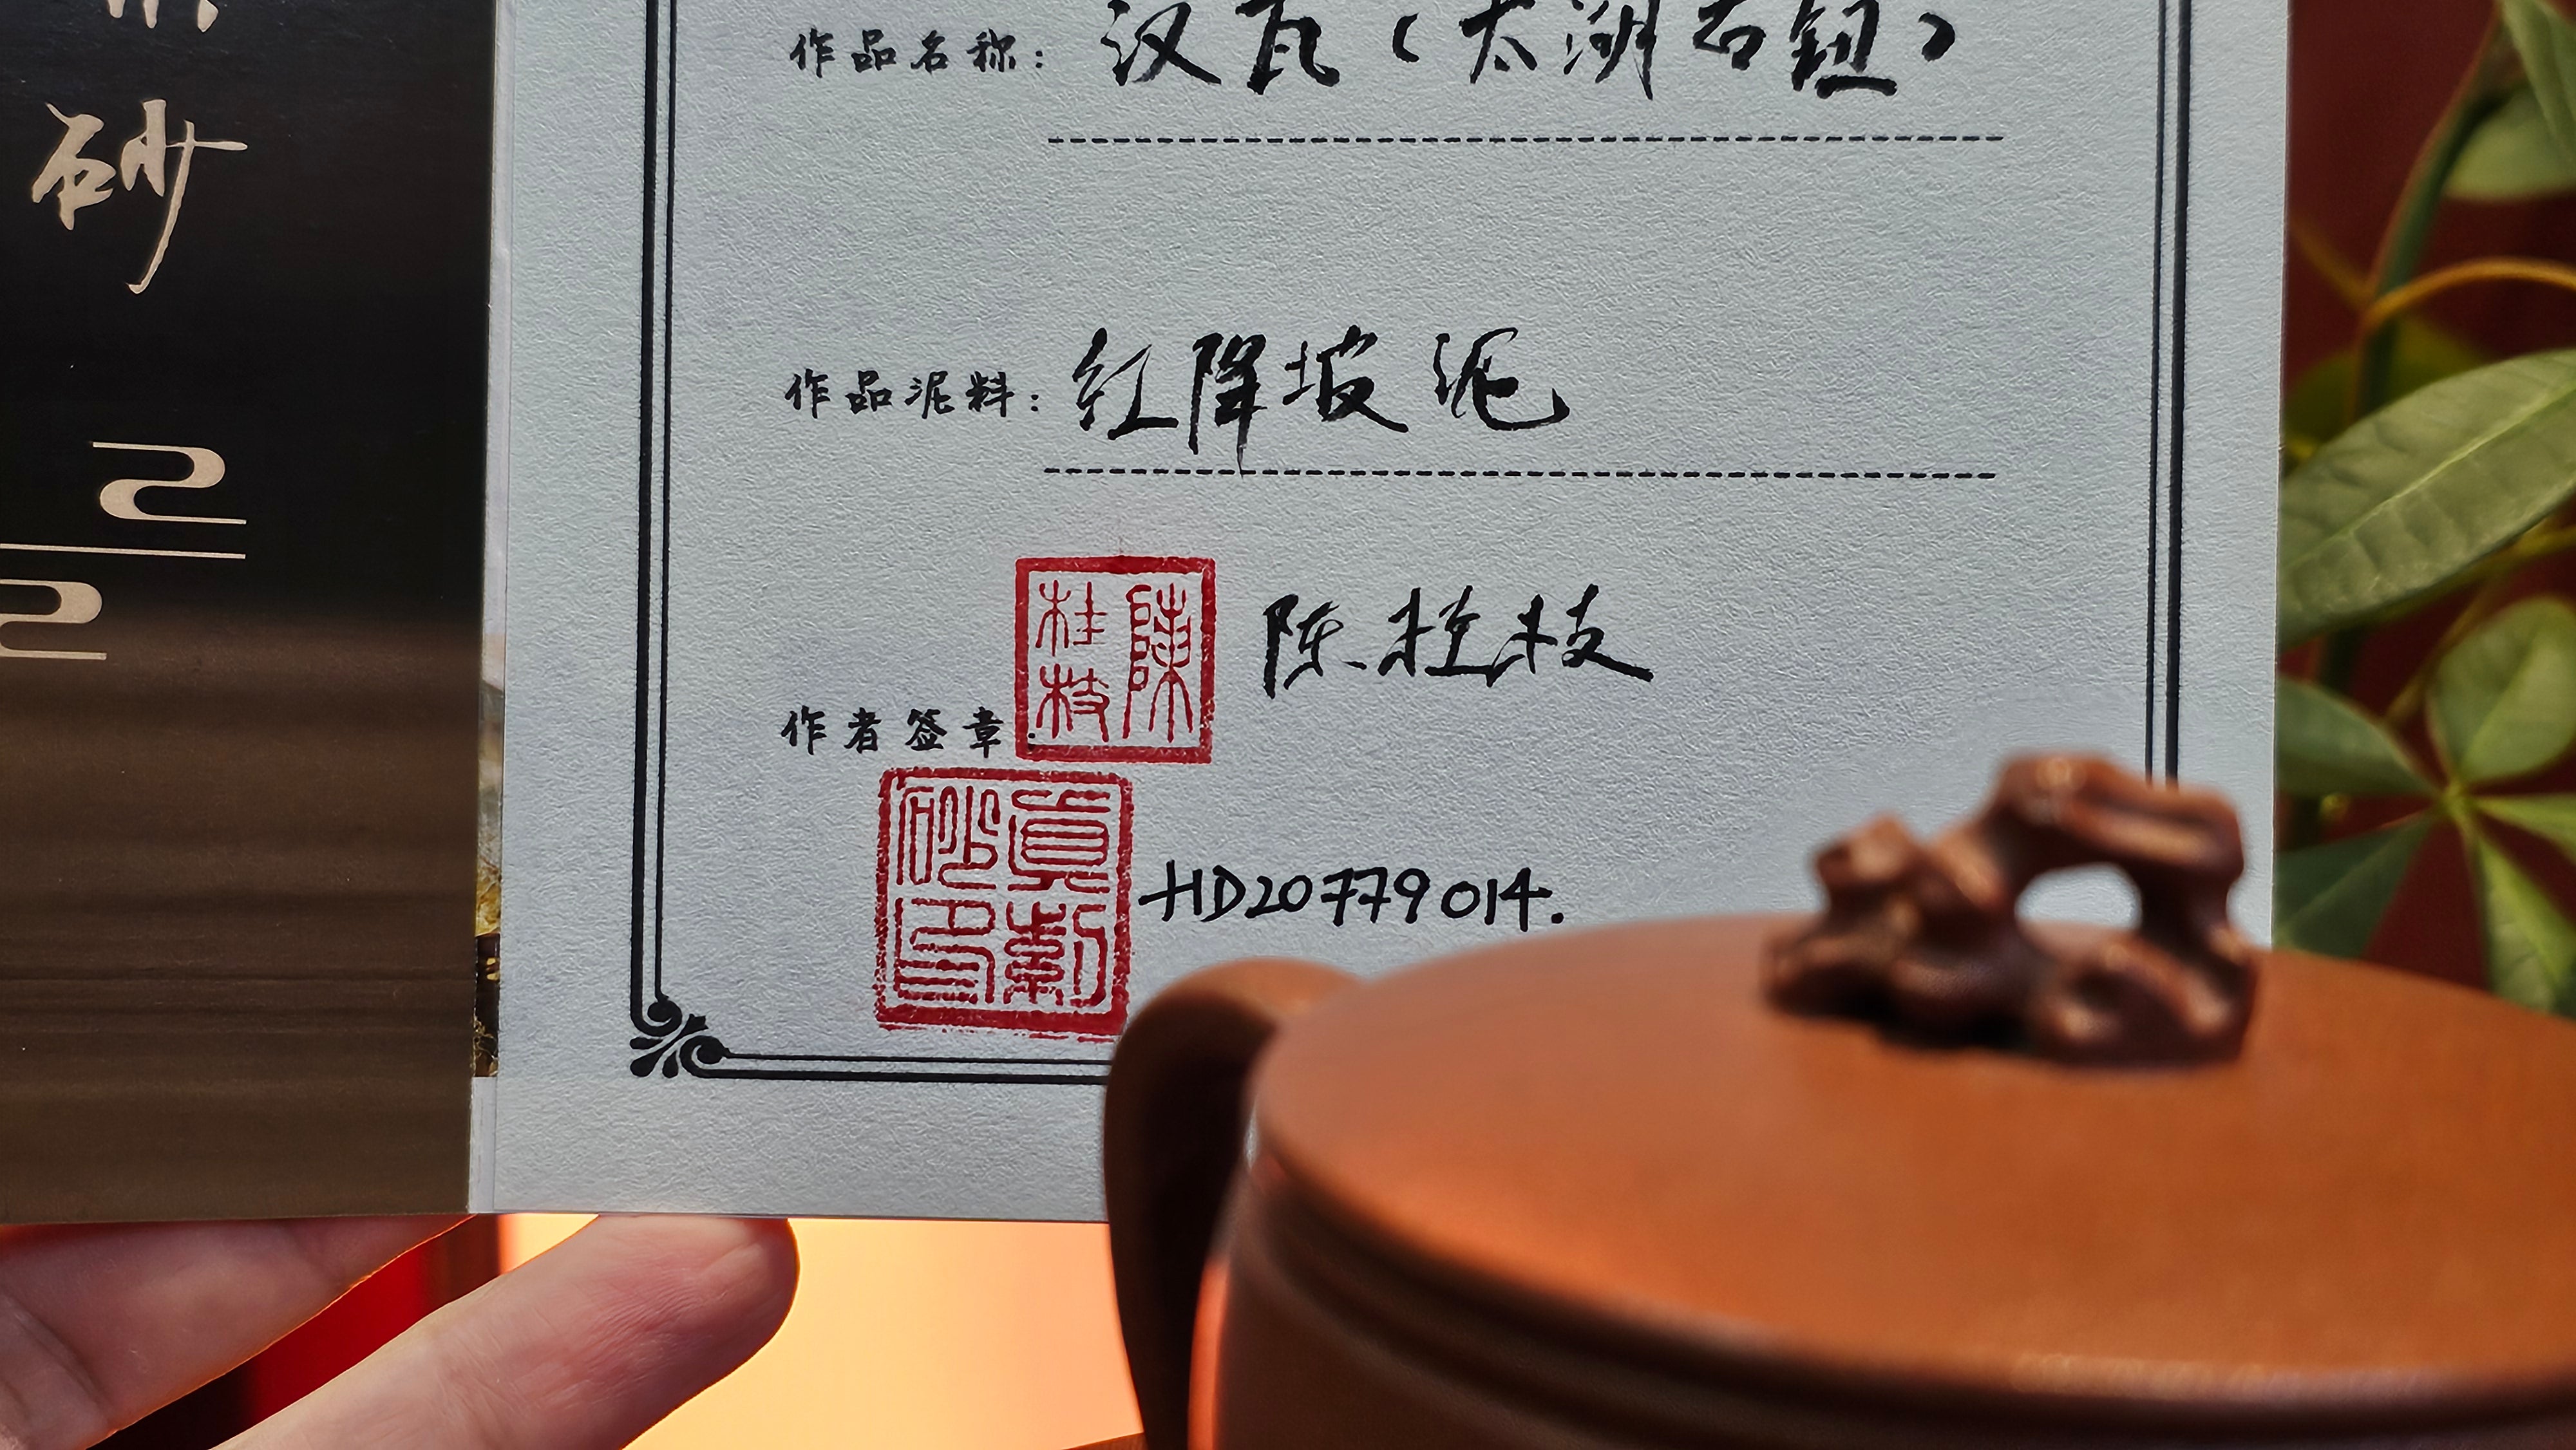 砂
作品名称：汉瓦（太湖石钮）
作品泥料：红降坡泥
陳桂枝
陈桂枝
作者签章：
真紫砂印
HD20779014.